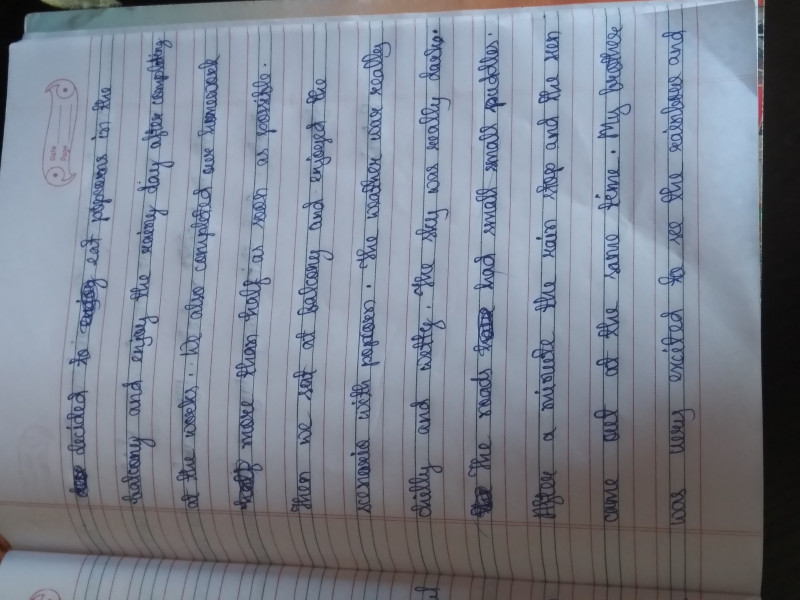 Date
Page
decided to eat popcorns in the
balcony and enjoy the rainy day after completing
all the works. We also completed our homework
more than half as soon as possible.
Then we sat at balcony and enjoyed the
scenario with popcorn. The weather was really
chilly and wetty. The sky was really dark.
The roads had small small puddles.
After a minute the rain stop and the sun
came out at the same time. My brother
was very excited to see the rainbow and